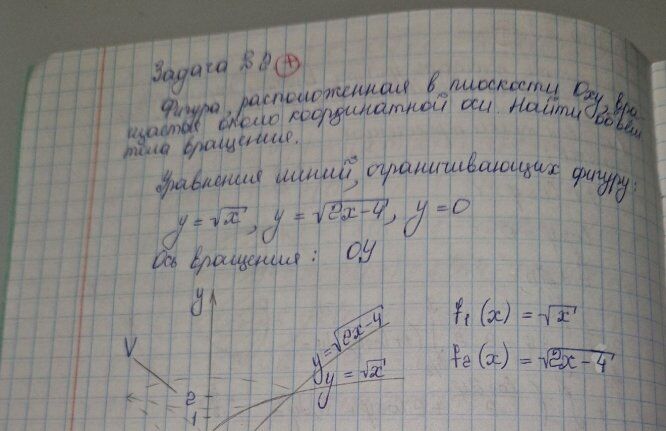 Задача 8.8 +
Фигура, расположенная в плоскости Oxy, вра-
щается около координатной оси. Найти объём
тела вращения.
Уравнения линий, ограничивающих фигуру:
y = √x, y = √2x-4, y = 0
Ось вращения: OY
y
f₁(x) = √x
V
y = √2x-4
f₂(x) = √2x-4
y = √x
2
1